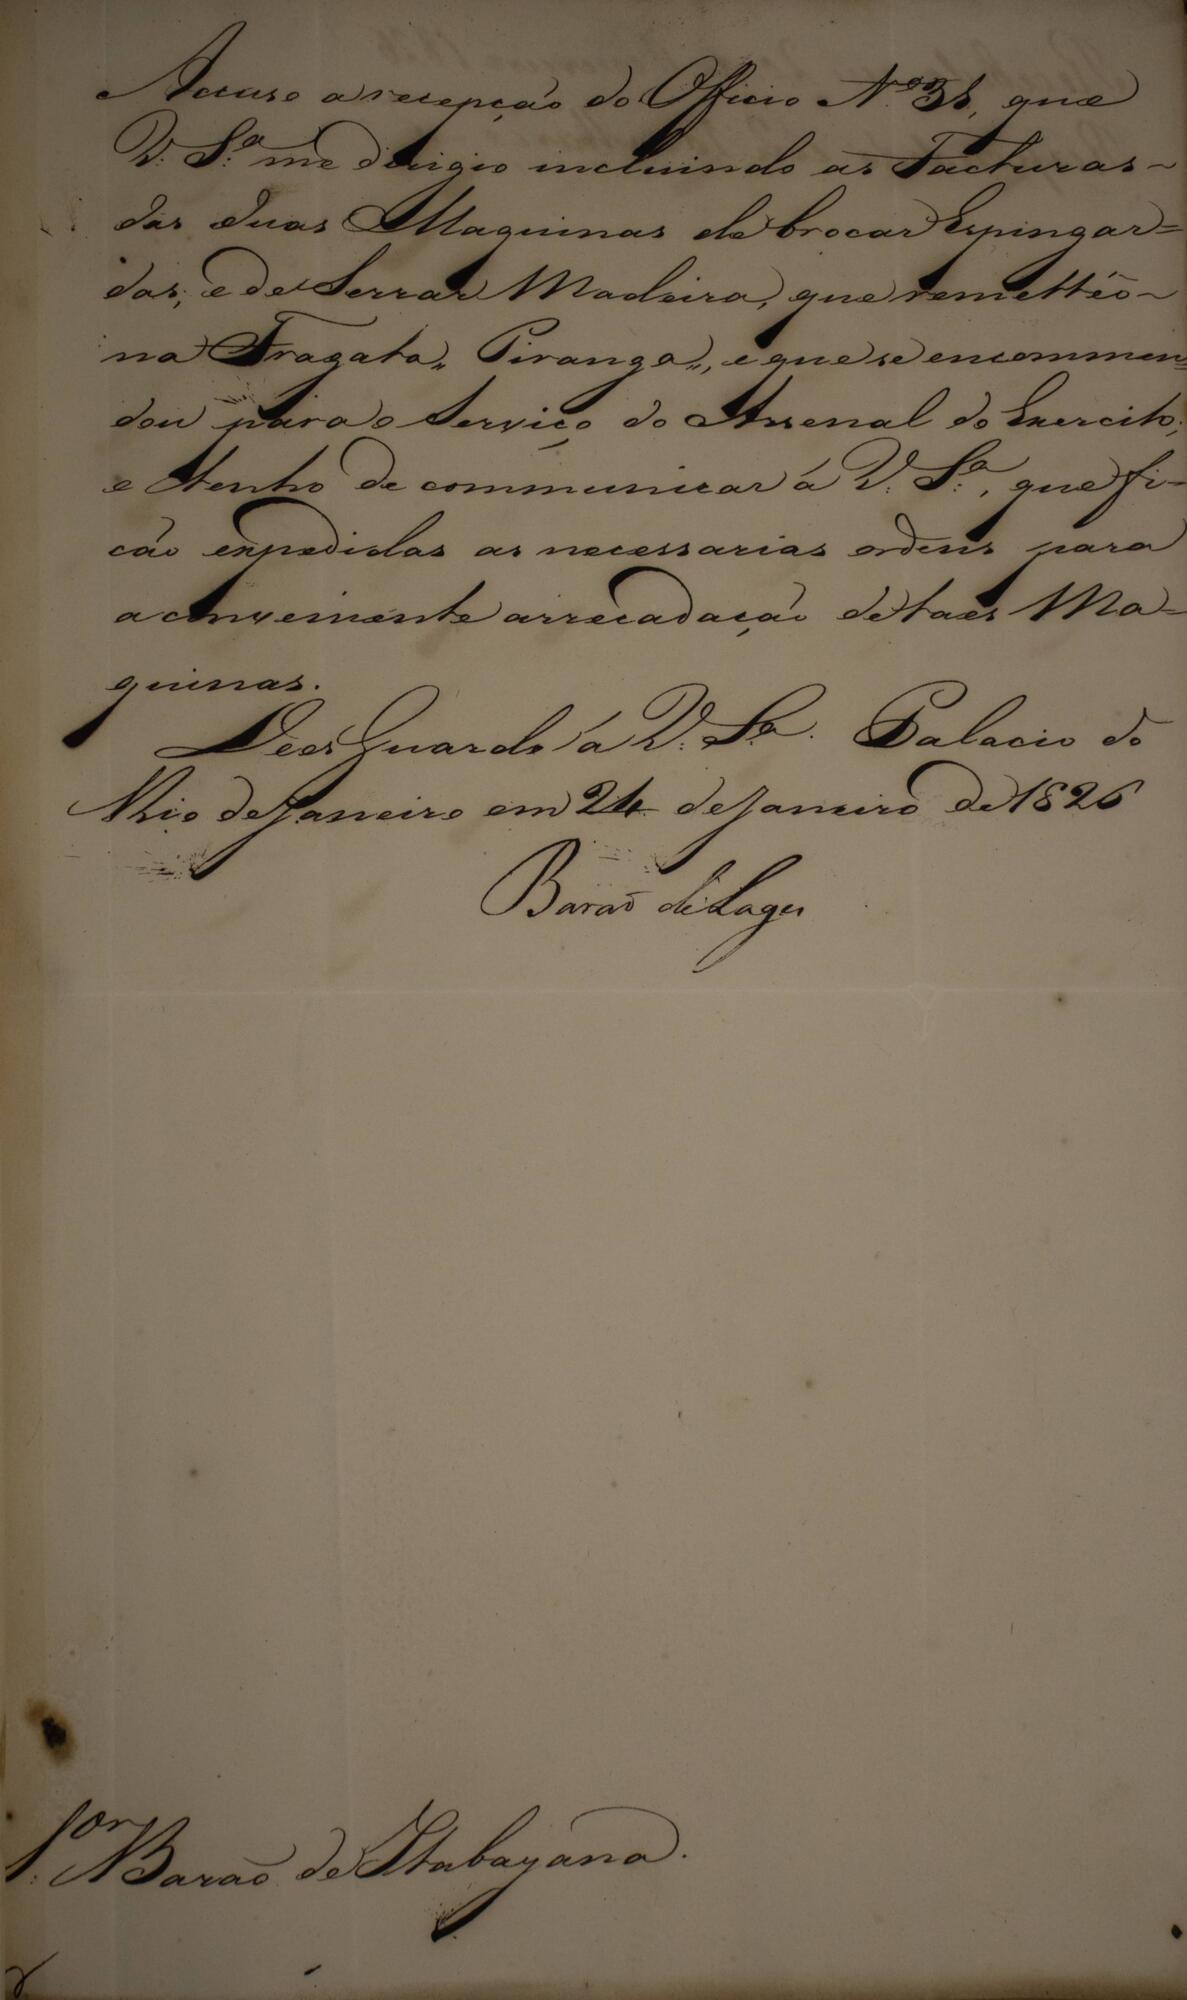 Accuso a recepção do Officio N.º 38, que
V. S.ª me dirigio incluindo as Facturas~
das duas Maquinas de brocar Espingar=
das, e de Serrar Madeira, que remettêo~
na Fragata „ Piranga „, e que se encommen=
dou para o Serviço do Arsenal do Exercito;
e tenho de communicar á V. S.ª, que fi=
cão expedidas as necessarias ordens para
a conveniente arrecadação de taes Ma=
quinas.
Deos Guarde á V. S.ª. Palacio do
Rio de Janeiro em 24 de Janeiro de 1826
Barão de Lages
S.or Barão de Itabayana.